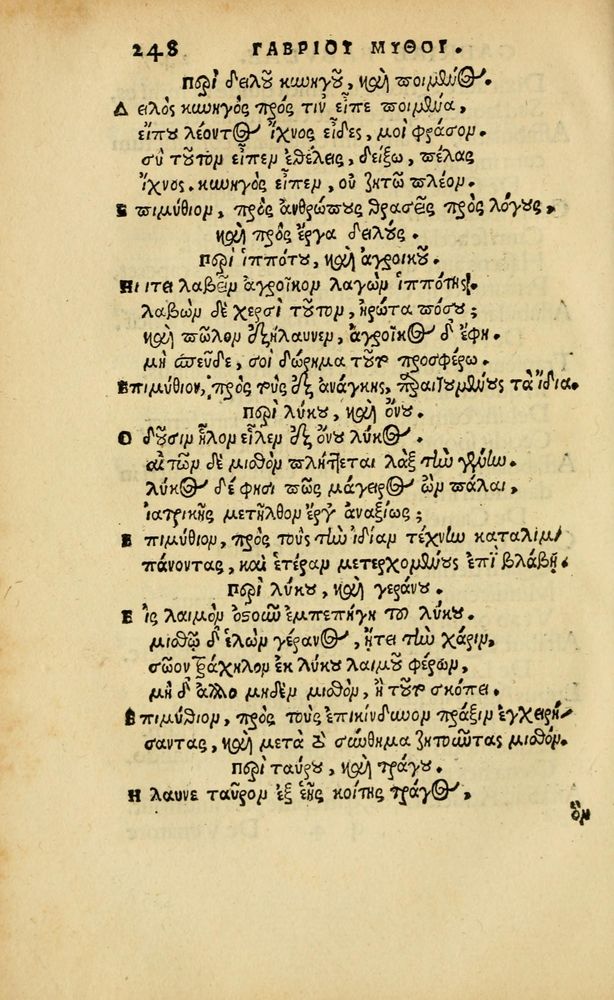 248 ΓΑΒΡΙΟΥ ΜΥΘΟΙ.
περὶ δειλοῦ κυνηγοῦ, καὶ ποιμένος.
Δειλὸς κυνηγὸς πρός τιν' εἶπε ποιμένα,
εἴπου λέοντος ἴχνος εἶδες, μοὶ φράσον.
σὺ τοῦτον εἶπεν ἐθέλεις, δείξω, πέλας
ἴχνος. κυνηγὸς εἶπεν, οὐ ζητῶ πλέον.
Ἐπιμύθιον, πρὸς ἀνθρώπους θρασεῖς πρὸς λόγους,
καὶ πρὸς ἔργα δειλούς.
περὶ ἱππότου, καὶ ἀγροίκου.
Ηιτει λαβεῖν ἀγροῖκον λαγὼν ἱππότης.
λαβὼν δὲ χερσὶ τοῦτον, ἠρώτα πόσου;
καὶ πῶλον ἐξήλαυνεν, ἀγροῖκος δ' ἔφη.
μὴ σπεῦδε, σοὶ δώρημα τοῦτο προσφέρω.
Ἐπιμύθιον, πρὸς τοὺς ἐξ ἀνάγκης, τὰ ἴδια.
περὶ λύκου, καὶ ὄνου.
Ὀδοῦσιν ἧλον εἷλεν ἐξ ὄνου λύκος.
αἰτῶν δὲ μισθὸν πλήττεται λὰξ τὴν γένυν.
λύκος δέ φησι πῶς μάγειρος ὢν πάλαι,
ἰατρικῆς μετῆλθον ἔργ' ἀναξίως;
Ἐπιμύθιον, πρὸς τοὺς τὴν ἰδίαν τέχνην καταλιμ-
πάνοντας, καὶ ἑτέραν μετερχομένους ἐπὶ βλάβῃ.
περὶ λύκου, καὶ γεράνου.
Εἰς λαιμὸν ὀστοῦν ἐμπεπήγη τῷ λύκῳ.
μισθῷ δ' ἑλὼν γέρανος, ᾔτει τὴν χάριν,
σῶον τράχηλον ἐκ λύκου λαιμοῦ φέρων,
μὴ δ' ἄλλο μηδὲν μισθὸν, ἢ τοῦτο σκόπει.
Ἐπιμύθιον, πρὸς τοὺς ἐπικίνδυνον πρᾶξιν ἐγχειρή-
σαντας, καὶ μετὰ τὸ σωθῆναι ζητοῦντας μισθόν.
περὶ ταύρου, καὶ τράγου.
Ηλαυνε ταῦρον ἐξ ἑῆς κοίτης τράγος,
ὃν